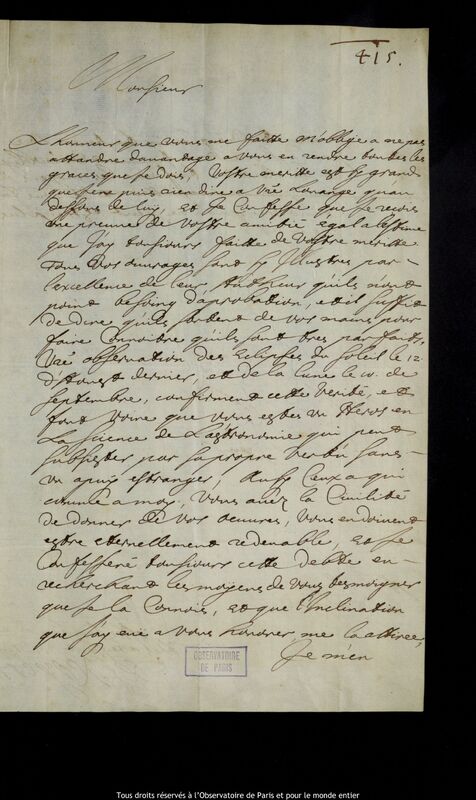 415.
Monsieur
L'honneur que vous me faitte m'oblige a ne pas
attandre davantage a vous en rendre toutes les
graces que je dois, Vostre meritte est sy grand
que je ne puis rien dire a vre Louange qu'au
dessous de luy, Et Je Confesse que Je recois
une preuve de vostre amitié egal a l'estime
que J'ay tousiours faitte de Vostre meritte
Tous vos ouvrages sont sy Illustres par
l'excellence de leur Autheur qu'ils n'ont
point besoing d'aprobation, et il suffit
de dire qu'ils sortent de vos mains pour
faire Connoitre qu'ils sont tres parfaits,
Vre observation des Eclipses du soleil le 12
d'Aoust dernier, et de la Lune le 10. de
septembre, confirment cette verité, et
font voire que vous estes un Heros en
La science de L'astronomie qui peut
subsister par sa propre vertu sans
un apuis estranger, Aussy Ceux a qui
comme a moy, Vous avez la Civilité
de donner de vos oeuvres, Vous en doivent
estre eternellement redevable, Et Je
Confesseré tousiours cette debte en
recherchant les moyens de vous tesmoigner
que Je la Connois, Et que l'Inclination
que J'ay eüe a vous honorer me l'a attirée,
Je m'en
OBSERVATOIRE
DE PARIS
Tous droits réservés à l'Observatoire de Paris et pour le monde entier